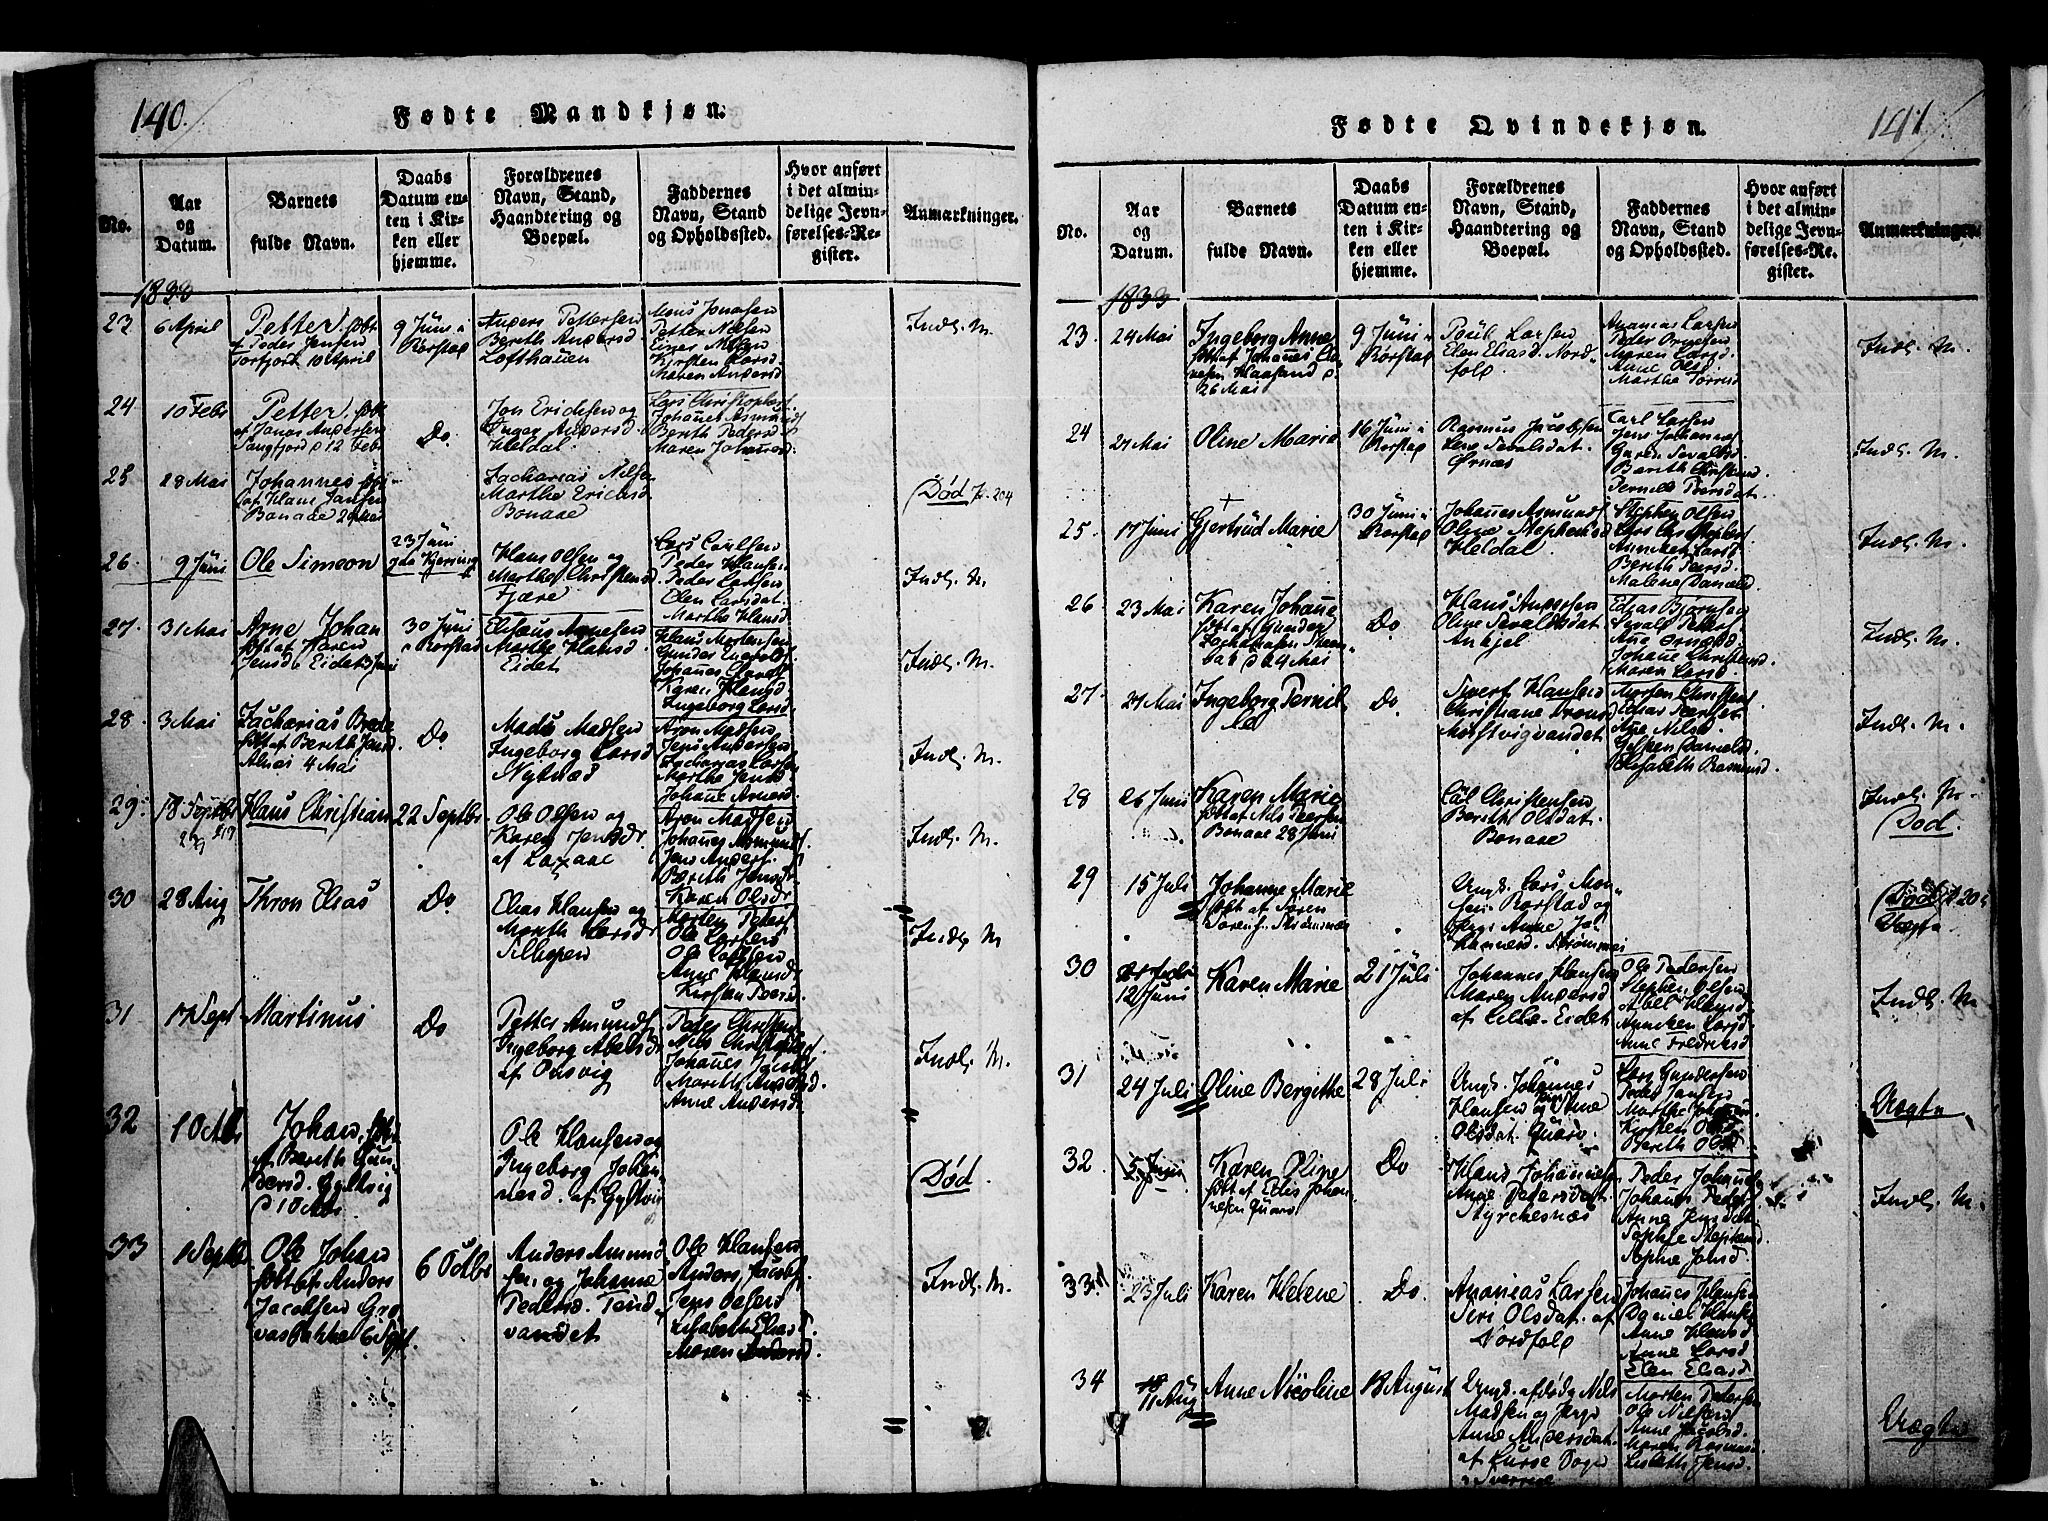 140.
Fødte Mandkjøn.
No.
Aar
og
Datum.
Barnets
fulde Navn.
Daabs
Datum en-
ten i Kir-
ken eller
hjemme.
Forældrenes
Navn, Stand,
Haandtering og
Boepæl.
Faddernes
Navn, Stand
og Opholdssted.
Hvor anført
i det almin-
delige Jevn-
førelses-Re-
gister.
Anmærkninger.
1833
23
6 April
Petter. døbt
af Peder Jensen
Torfjord 10 April
9 Juni i
Rørstad
Anders Pettersen
Bereth Andersd
Lofthauen
Mons Jonasen
Petter Nilsen
Einer Nilsen
Kirsten Larsd
Maren Andersd
Indl. M.
24
10 Febr
Petter. døbt
af Jonas Andersen
12 Febr
Do.
Jon Erichsen og
Inger Andersd
Heldal
Lars Christophers
Johannes Asmunds
Bereth Pedersd
Maren Johansd
25
28 Mai
Johannes
af Hans Jansen
Bonaae 29 Mai
Zacharias Nilsen
Marthe Erichsd
Bonaae
Død p. 204
26.
9 Juni
Ole Simeon
23 Juni
paa Kjerring
Hans Olsen og
Marthe Christensd
Fjære
Lars Carlsen
Peder Hansen
Peder Larsen
Elen Larsdat
Marthe Hansd
Indl. M.
27.
31 Mai
Arne Johan
døbt af Karen
Jensd Eidet 3 Juni
30 Juni
Rørstad
Elisæus Arnesen
Marthe Hansd
Eidet
Hans Mortensen
Gunder
Johannes
Karen Hansd
Ingeborg Larsd
Indl. M.
28.
3 Mai
Zacharias Brede
døbt af Bereth Jensd.
Alnes 4 Mai
Do.
Mads Madsen
Ingeborg Larsd
Nytnæs
Aron Madsen
Jens Andersen
Zacharias Larsen
Marthe Jensd
Johane Arnesd
Indl. M.
29.
18 Septbr
Hans Christian
22 Septbr.
Ole Olsen og
Karen Jensdr
af Laxaae
Aron Madsen
Johannes Asmunds.
Jens Anders.
Bereth Jensdr
Karen Olsdr
Indl. M.
30
28 Aug
Thron Elias
Do.
Elias Hansen og
Mareth Larsdr
Silhopen
Morten Peders
Ole Larsen
Ole Larsen
Anne Hansdr
Kirsten Peersd
Indl. M
31
17 Sept
Martinus
Do
Petter Amunds
Ingeborg Abelsdr
af
Peder Christens
Nils Christophers.
Johannes Jacobs
Mareth Andersd.
Anne Andersd
Indl. M.
32
1 Octbr
Johan, døbt
af Bereth Gun-
dersd. Gyltvig
d 1 Octbr
Ole Hansen og
Ingeborg Johan-
nesd. af Gyltvig
Død.
33
1 Septbr
Ole Johan
døbt af Anders
Jacobsen Grø-
vasbakke 6 Sept.
6 Octbr
Anders Amund-
sen og Johanne
Pedersd. Tend-
vandet
Ole Hansen
Anders Jacobs.
Jens Olsen
Elisabeth Eliasd.
Maren Andersd.
Indl. M.
141
Fødte Qvindekjøn.
No.
Aar
og
Datum.
Barnets
fulde Navn.
Daabs
Datum en-
ten i Kir-
ken eller
hjemme.
Forældrenes
Navn, Stand,
Haandtering og
Boepæl.
Faddernes
Navn, Stand
og Opholdssted.
Hvor anført
i det almin-
delige Jevn-
førelses-Re-
gister.
Anmærkninger.
1833
23.
24 Mai
Ingeborg Anne
døbt af Johannes Cla-
usen Haasand d.
26 Mai
9 Juni i
Rørstad
Poul Larsen
Elen Eliasd. Nord-
fold
Ananias Larsen
Peder Arnesen
Maren Larsd.
Anne Olsd
Marthe Torrisd
Indl. M.
24
21 Mai
Oline Marie
16 Juni i
Rørstad
Rasmus Jacobsen
Lene Sevalsdat.
Ørnæs
Carl Larsen
Jens Johannes
Guren Sevalsd
Bereth Christensd
Pernele Peersdat
Indl. M.
25.
17 Juni
Gjertrud Marie
30 Juni i
Rørstad
Johannes Asmunds
Oline Stephensd
Heldal
Stephen Olsen
Lars Christophers
Anneken Larsd
Bereth Peersd.
Malene Danielsd
Indl. M.
26
23 Mai
Karen Johanne
døbt af Gunder
Zachariasen
24 Mai
Do
Hans Andersen
Oline Sevaldsdat
Ankjel
Elias Bjørnsen
Sevald Peders
Johanne Christensd.
Maren Larsd
Indl. M.
27.
21 Mai
Ingeborg Pernil-
le
Do.
Sivert Hansen
Christiane Tronsd
Mørsvigvandet
Morten Christens
Elias Peersen
Ane Nilsd.
Danielsd
Elisabeth Rasmusd.
Indl. M.
28
26 Juni
Karen Marie
døbt af Nils Peersen
Bonaae 28 Juni
Carl Christensen
Bereth Olsdat.
Bonaae
Død.
29
15 Juli
Johanne Marie
døbt af Søren
Sørens. Strømsnæs
Ungk. Lars Mon-
sen Rørstad og
Pige Anne Jo-
hannesd. Strømsnæs
Død p. 205
Uægte
30
12 Juni
Karen Marie
21 Juli
Johannes Hansen
Maren Andersd
af Lille-Eidet
Ole Pedersen
Stephen Olsen
Abel Hansd
Anneken Larsd
Anne Fredriksd
Indl. M.
31
24 Juli
Oline Bergithe
28 Juli
Ungk. Johannes
Hansen og Pige Ane
Olsdat. Quarv.
Lars Gundersen
Peder Jansen
Marthe Johansd
Kirsten Olsd
Bereth Olsd
Uægte
32.
5 Juni
Karen Oline
døbt af Elis Johan-
nesen Quarv
Do
Hans Johannes
Ane Pedersdat.
Styrchesnæs
Peder Johannes
Johannes Peders
Anne Jensdat.
Sophie Stephensd.
Sophie Jonsd.
Indl. M.
33
23 Juli
Karen Helene
Do.
Ananias Larsen
Siri Olsdat. af
Nordfold
Johannes Hansen
Daniel Hansen
Anne Hansd
Anne Larsd
Elen Eliasd
34
11 Aug
Anne Nicoline
18 August
Ungk. afdøde Nils
Madsen og Pige
Anne Andersdat.
af
Morten Pedersen
Ole Nilsen
Anne Jacobsd.
Maren Rasmusd
Lisbeth Jensd.
Uægte